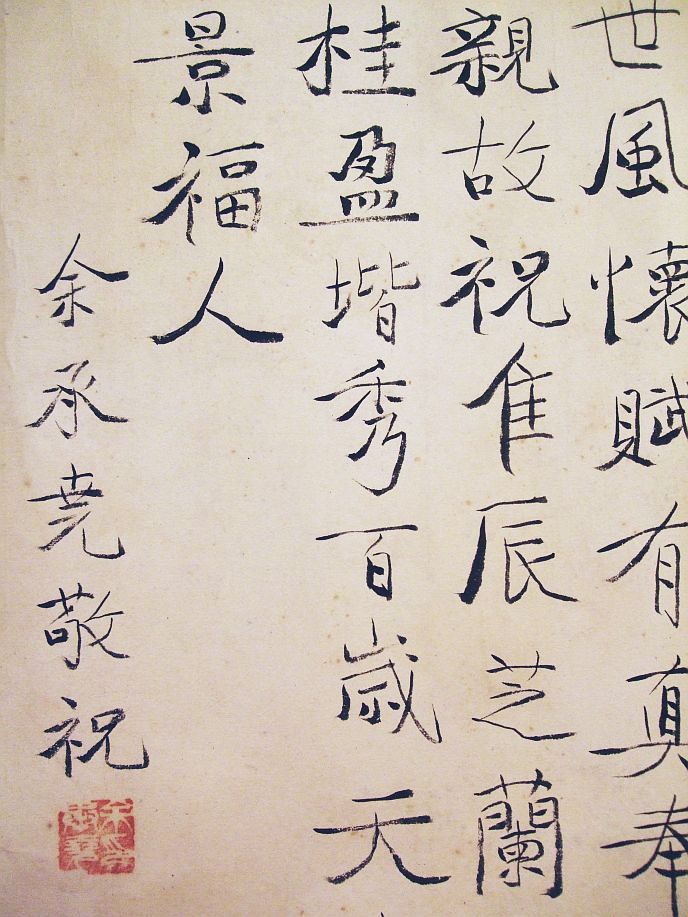 世風懷賦有真奉
親故祝隹辰芝蘭
桂盈堦秀百歲天
景福人
余承堯敬祝